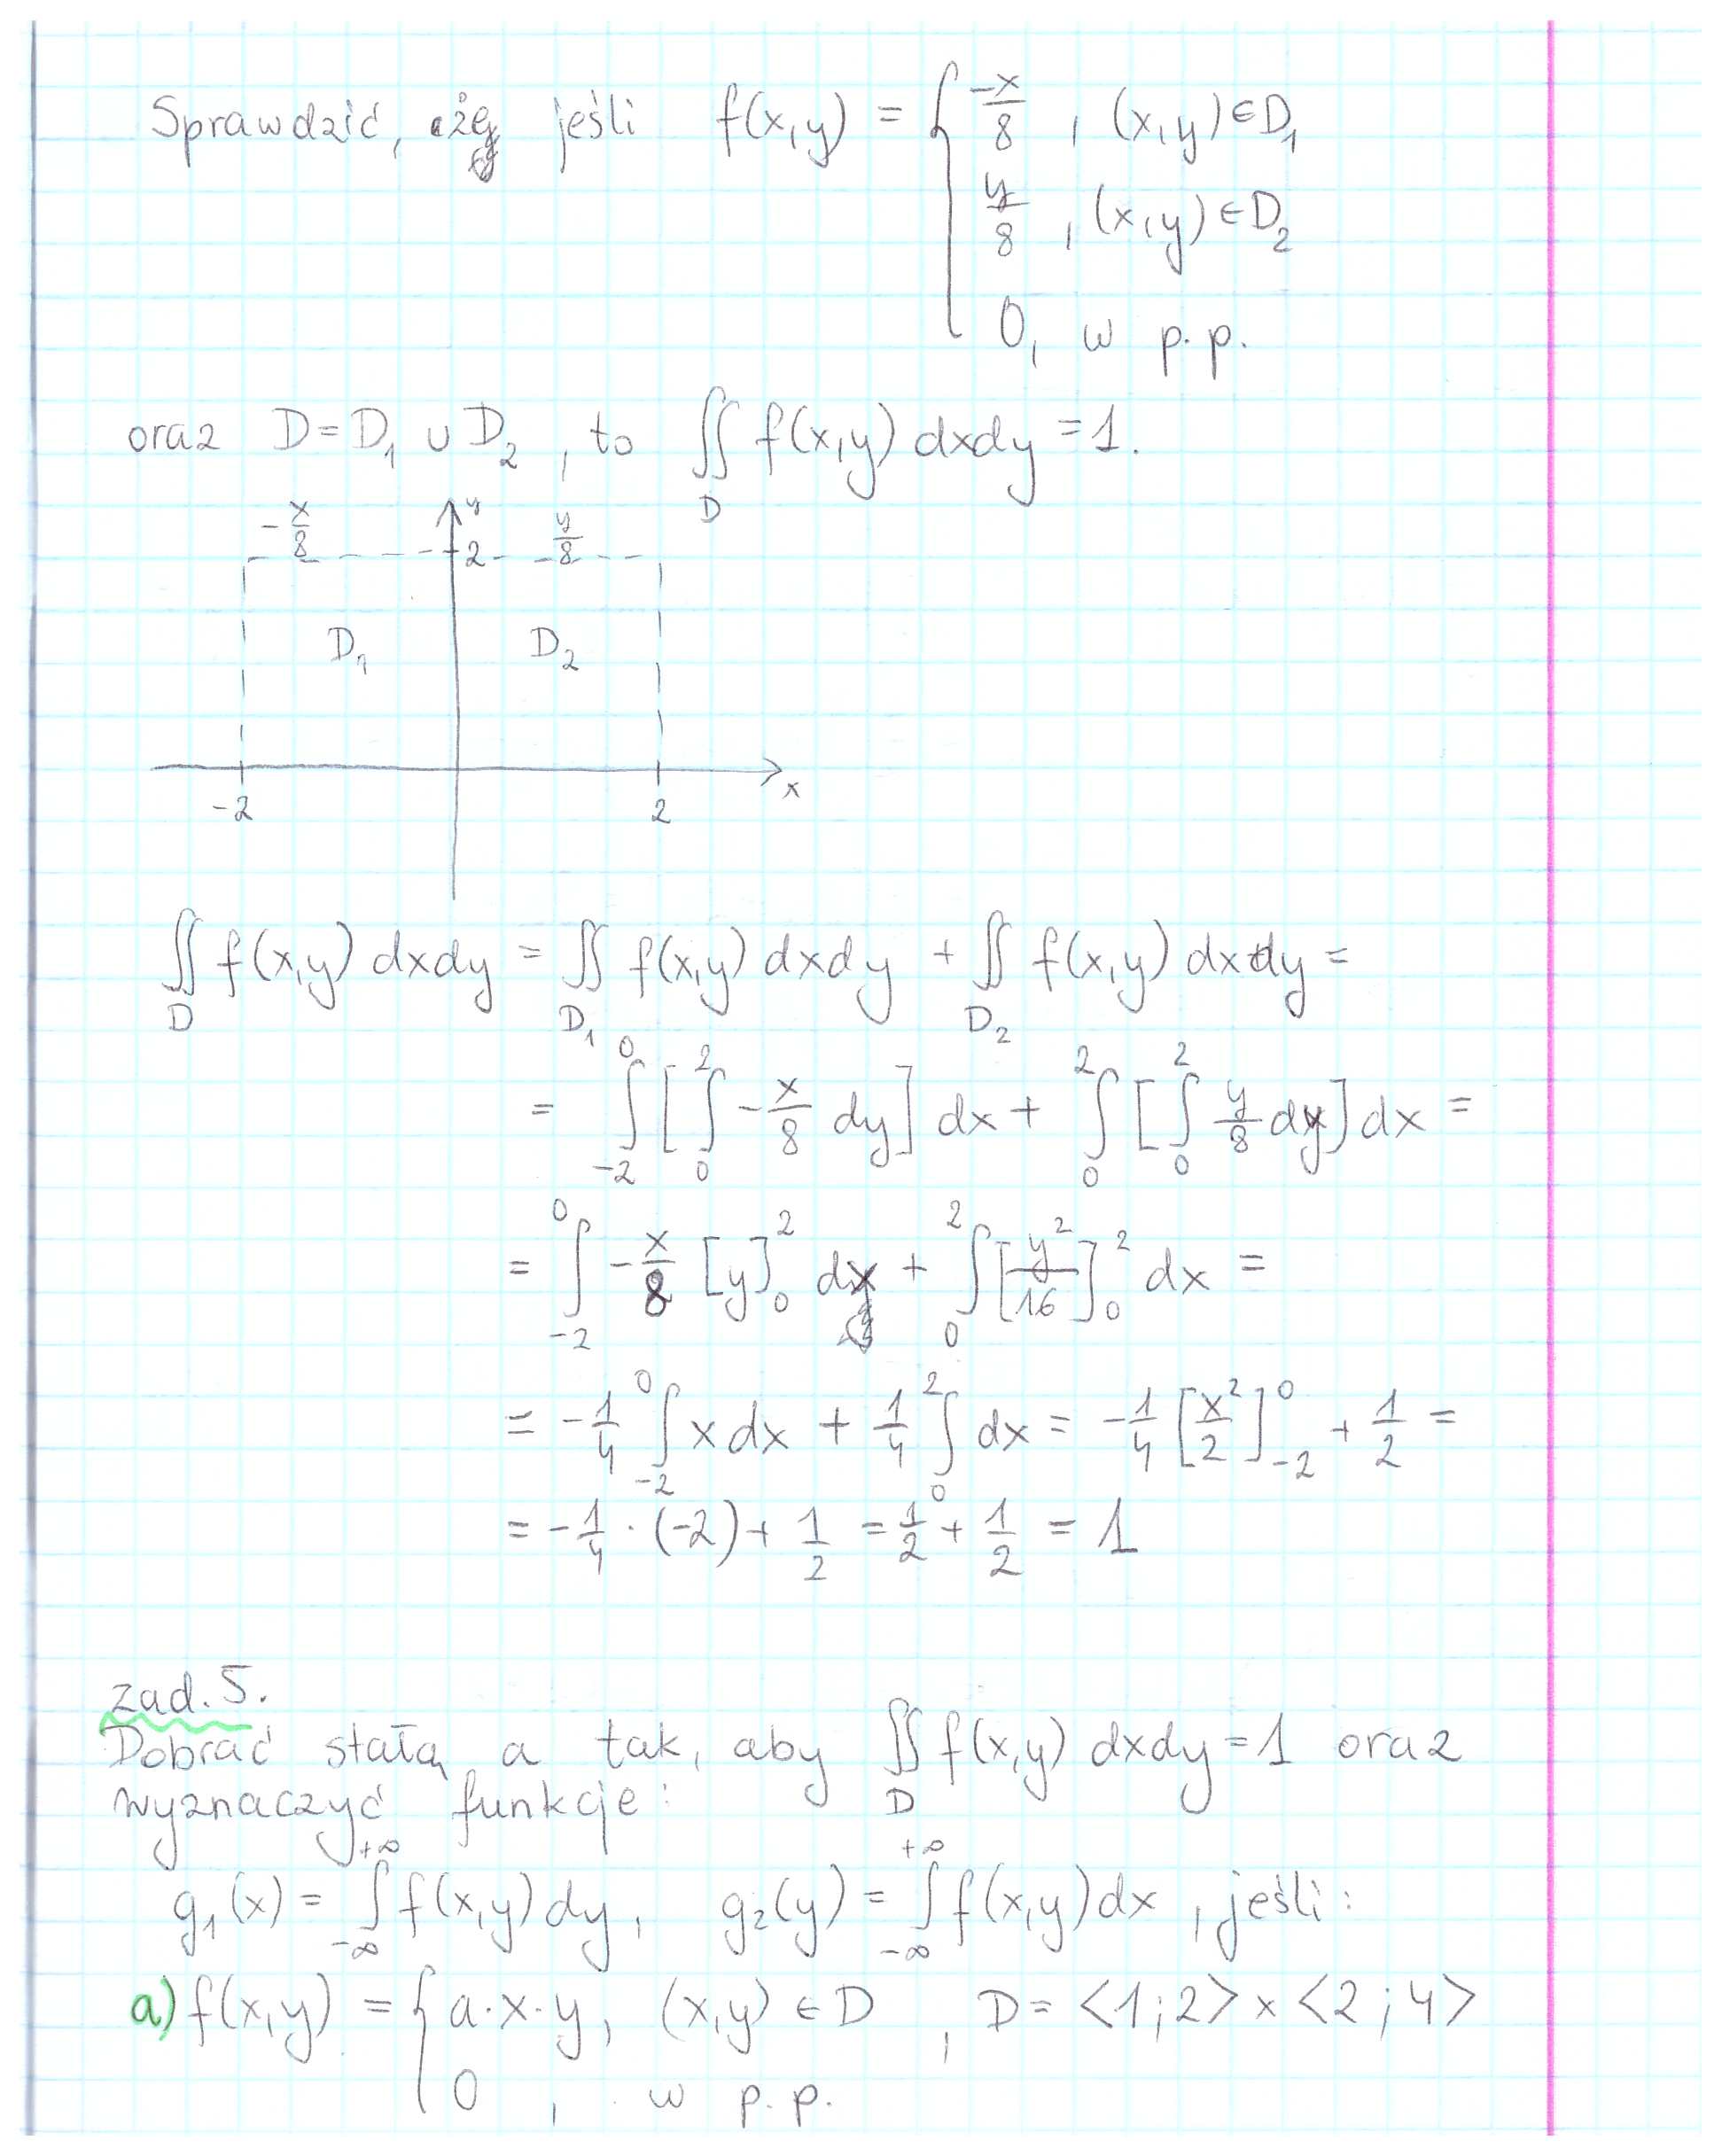 Sprawdzić, że jeśli f(x,y) = { -x/8 , (x,y) ∈ D₁
y/8 , (x,y) ∈ D₂
0, w p.p.
oraz D = D₁ ∪ D₂ , to ∬_D f(x,y) dxdy = 1.
-x/8 y y/8
2
D₁ D₂
x
-2 2
∬_D f(x,y) dxdy = ∬_D₁ f(x,y) dxdy + ∬_D₂ f(x,y) dxdy =
= ∫_{-2}^{0} [ ∫_{0}^{2} -x/8 dy ] dx + ∫_{0}^{2} [ ∫_{0}^{2} y/8 dy ] dx =
= ∫_{-2}^{0} -x/8 [y]_{0}^{2} dx + ∫_{0}^{2} [y²/16]_{0}^{2} dx =
= -1/4 ∫_{-2}^{0} x dx + 1/4 ∫_{0}^{2} dx = -1/4 [x²/2]_{-2}^{0} + 1/2 =
= -1/4 · (-2) + 1/2 = 1/2 + 1/2 = 1
zad. 5.
Dobrać stałą a tak, aby ∬_D f(x,y) dxdy = 1 oraz
wyznaczyć funkcje:
g₁(x) = ∫_{-∞}^{+∞} f(x,y) dy, g₂(y) = ∫_{-∞}^{+∞} f(x,y) dx , jeśli:
a) f(x,y) = { a·x·y, (x,y) ∈ D , D = <1;2> × <2;4>
0 , w p.p.